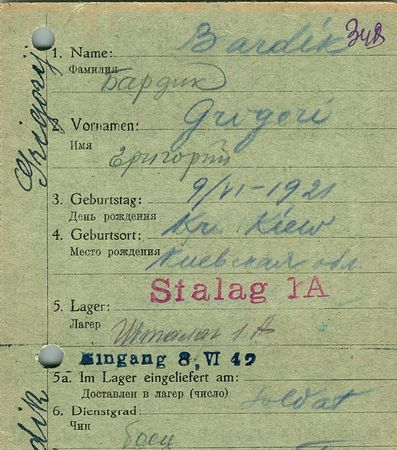 Bardik
1. Name:
Фамилия
Бардик
2. Vornamen:
Grigori
Имя
Григорий
3. Geburtstag: 9/VI-1921
День рождения
4. Geburtsort: Kr. Kiew
Место рождения
Киевская обл
Stalag 1A
5. Lager:
Лагер
Шталаг 1 А
Eingang 8, VI 42
5a. Im Lager eingeliefert am:
Доставлен в лагер (число)
Soldat
6. Dienstgrad:
Чин
боец
Grigorij
dik